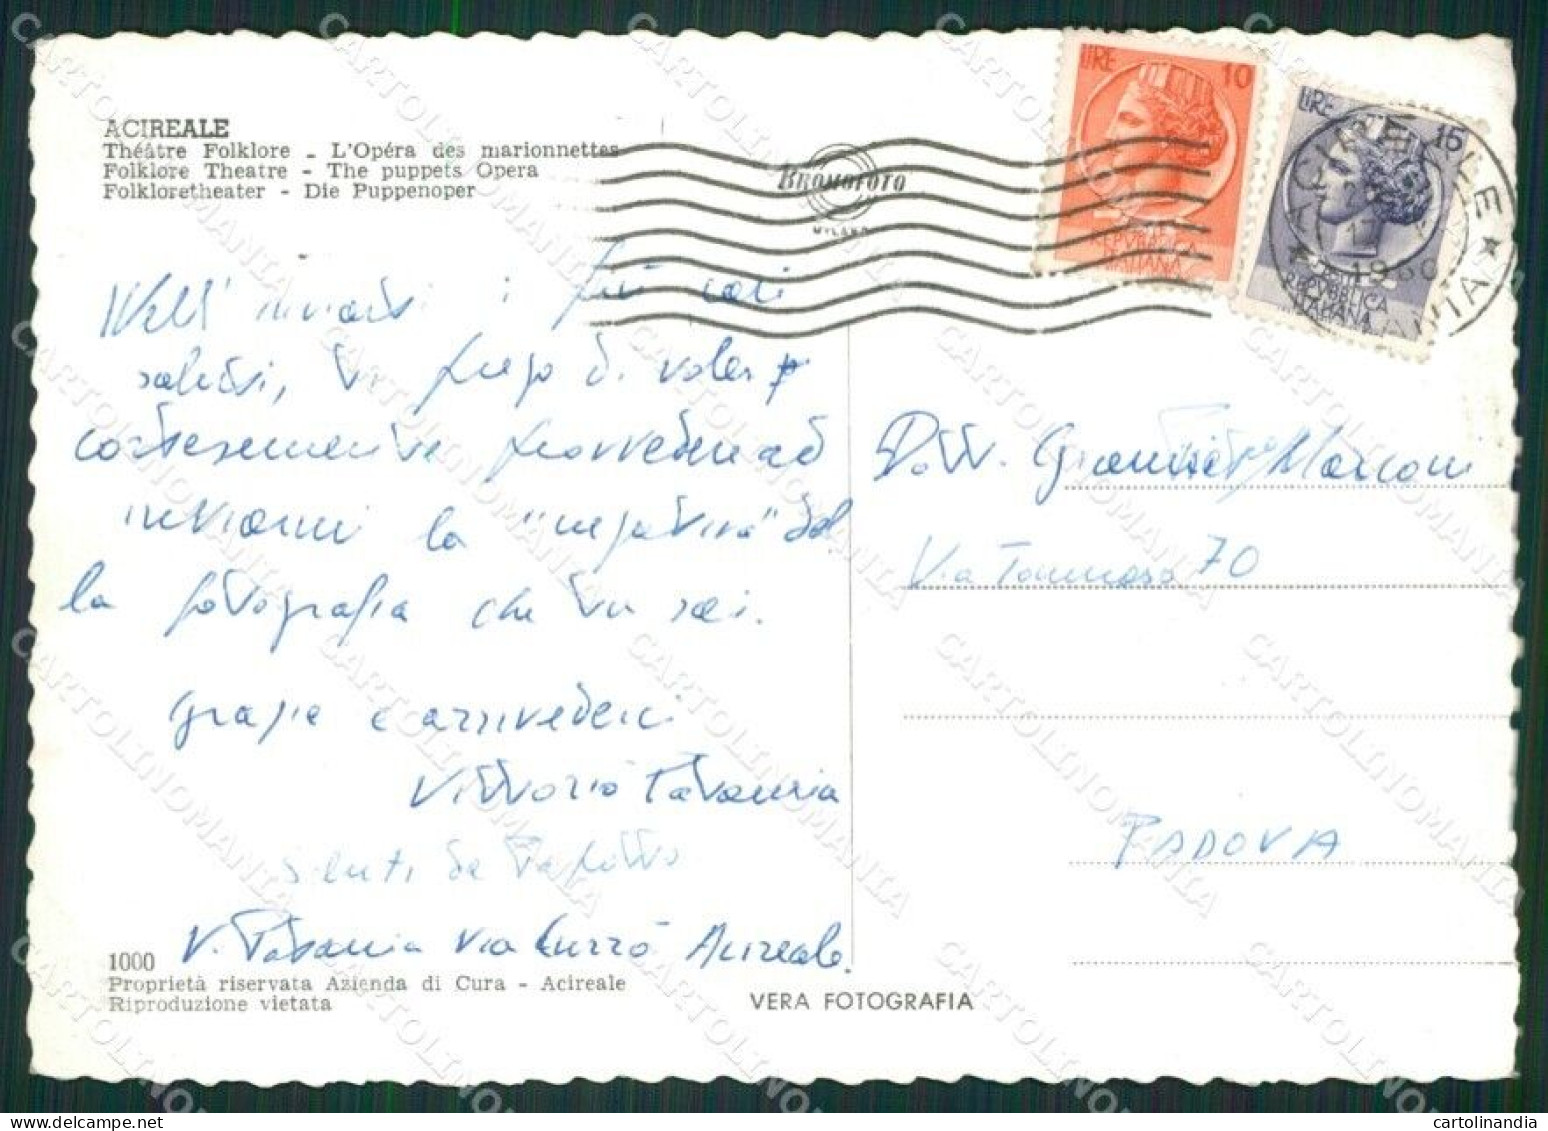 ACIREALE
Théâtre Folklore - L'Opéra des marionnettes
Folklore Theatre - The puppets Opera
Folkloretheater - Die Puppenoper
BROMOFOTO
MILANO
LIRE 10
REPVBBLICA
ITALIANA
LIRE 15
REPVBBLICA
ITALIANA
ACIREALE
1960
CATANIA
Nell' inviarti i più cari
saluti, ti prego di voler
cortesemente provvedere ad
inviarmi la "negativa" del
la fotografia che tu sai.
Grazie e arrivederci
Vittorio Patania
Saluti da
V. Patania Via Currò Acireale.
Dott. Marconi
Via Tommaseo 70
PADOVA
1000
Proprietà riservata Azienda di Cura - Acireale
Riproduzione vietata
VERA FOTOGRAFIA
CARTOLINOMANIA
cartolinandia